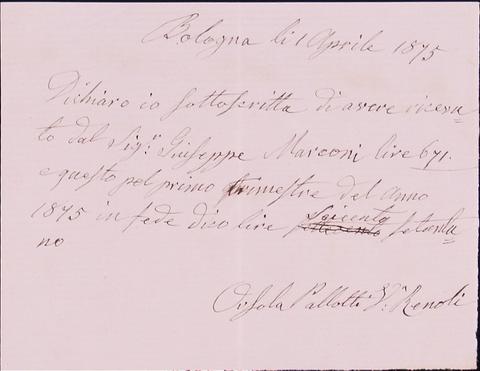 Bologna li 1 Aprile 1875
Dichiaro io sottoscritta di avere ricevu=
to dal Sig.r Giuseppe Marconi lire 671.
e questo pel primo trimestre del anno
1875 in fede dico lire Seicento
setanta=
no
Orsola Pallotti V.a Renoli